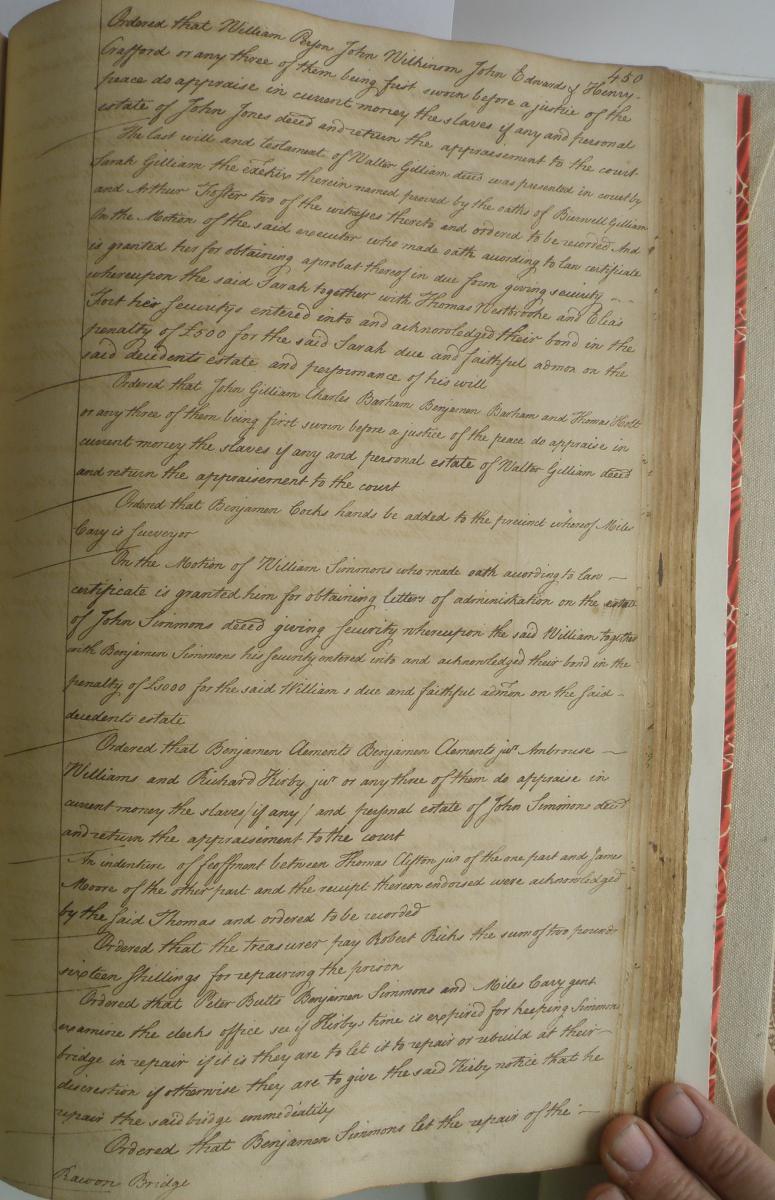 450
Ordered that William Person John Wilkinson John Edwards & Henry
Crafford or any three of them being first sworn before a justice of the
peace do appraise in current money the slaves if any and personal
estate of John Jones decēd and return the appraisement to the court
The last will and testament of Walter Gilliam decēd was presented in court by
Sarah Gilliam the exētrix therein named proved by the oaths of Burwell Gilliam
and Arthur Foster two of the witnesses thereto and ordered to be recorded And
On the Motion of the said executor who made oath acording to law certificate
is granted her for obtaining aprobat thereof in due form giving security
whereupon the said Sarah together with Thomas Westbrooke and Elias
Fort her Securitys entered into and acknowledged their bond in the
penalty of £500 for the said Sarah due and faithful admon on the
said decedents estate and performance of his will
Ordered that John Gilliam Charles Barham Benjamen Barham and Thomas Holt
or any three of them being first sworn before a justice of the peace do appraise in
current money the slaves if any and personal estate of Walter Gilliam decēd
and return the appraisement to the court
Ordered that Benjamen Cocks hands be added to the precinct whereof Miles
Cary is Surveyor
On the Motion of William Simmons who made oath acording to law
certificate is granted him for obtaining letters of administration on the estate
of John Simmons decēd giving Security whereupon the said William together
with Benjamen Simmons his Security entered into and acknowledged their bond in the
penalty of £1000 for the said William s due and faithful admon on the said
decedents estate
Ordered that Benjamen Clements Benjamen Clements junr Ambrouse
Williams and Richard Kirby junr or any three of them do appraise in
current money the slaves (if any) and personal estate of John Simmons decd
and return the appraisement to the court
An indenture of feoffment between Thomas Clifton junr of the one part and James
Moore of the other part and the receipt thereon endorsed were acknowledged
by the said Thomas and ordered to be recorded
Ordered that the treasurer pay Robert Ricks the sum of two pounds
sixteen shillings for repairing the prison
Ordered that Peter Butts Benjamen Simmons and Miles Cary gent
examine the clerks office see if Kirbys time is expired for keeping Simmons
bridge in repair if it is they are to let it to repair or rebuild at their
discrestion if otherwise they are to give the said Kirby notice that he
repair the said bridge immediatily
Ordered that Benjamen Simmons let the repair of the
Bridge